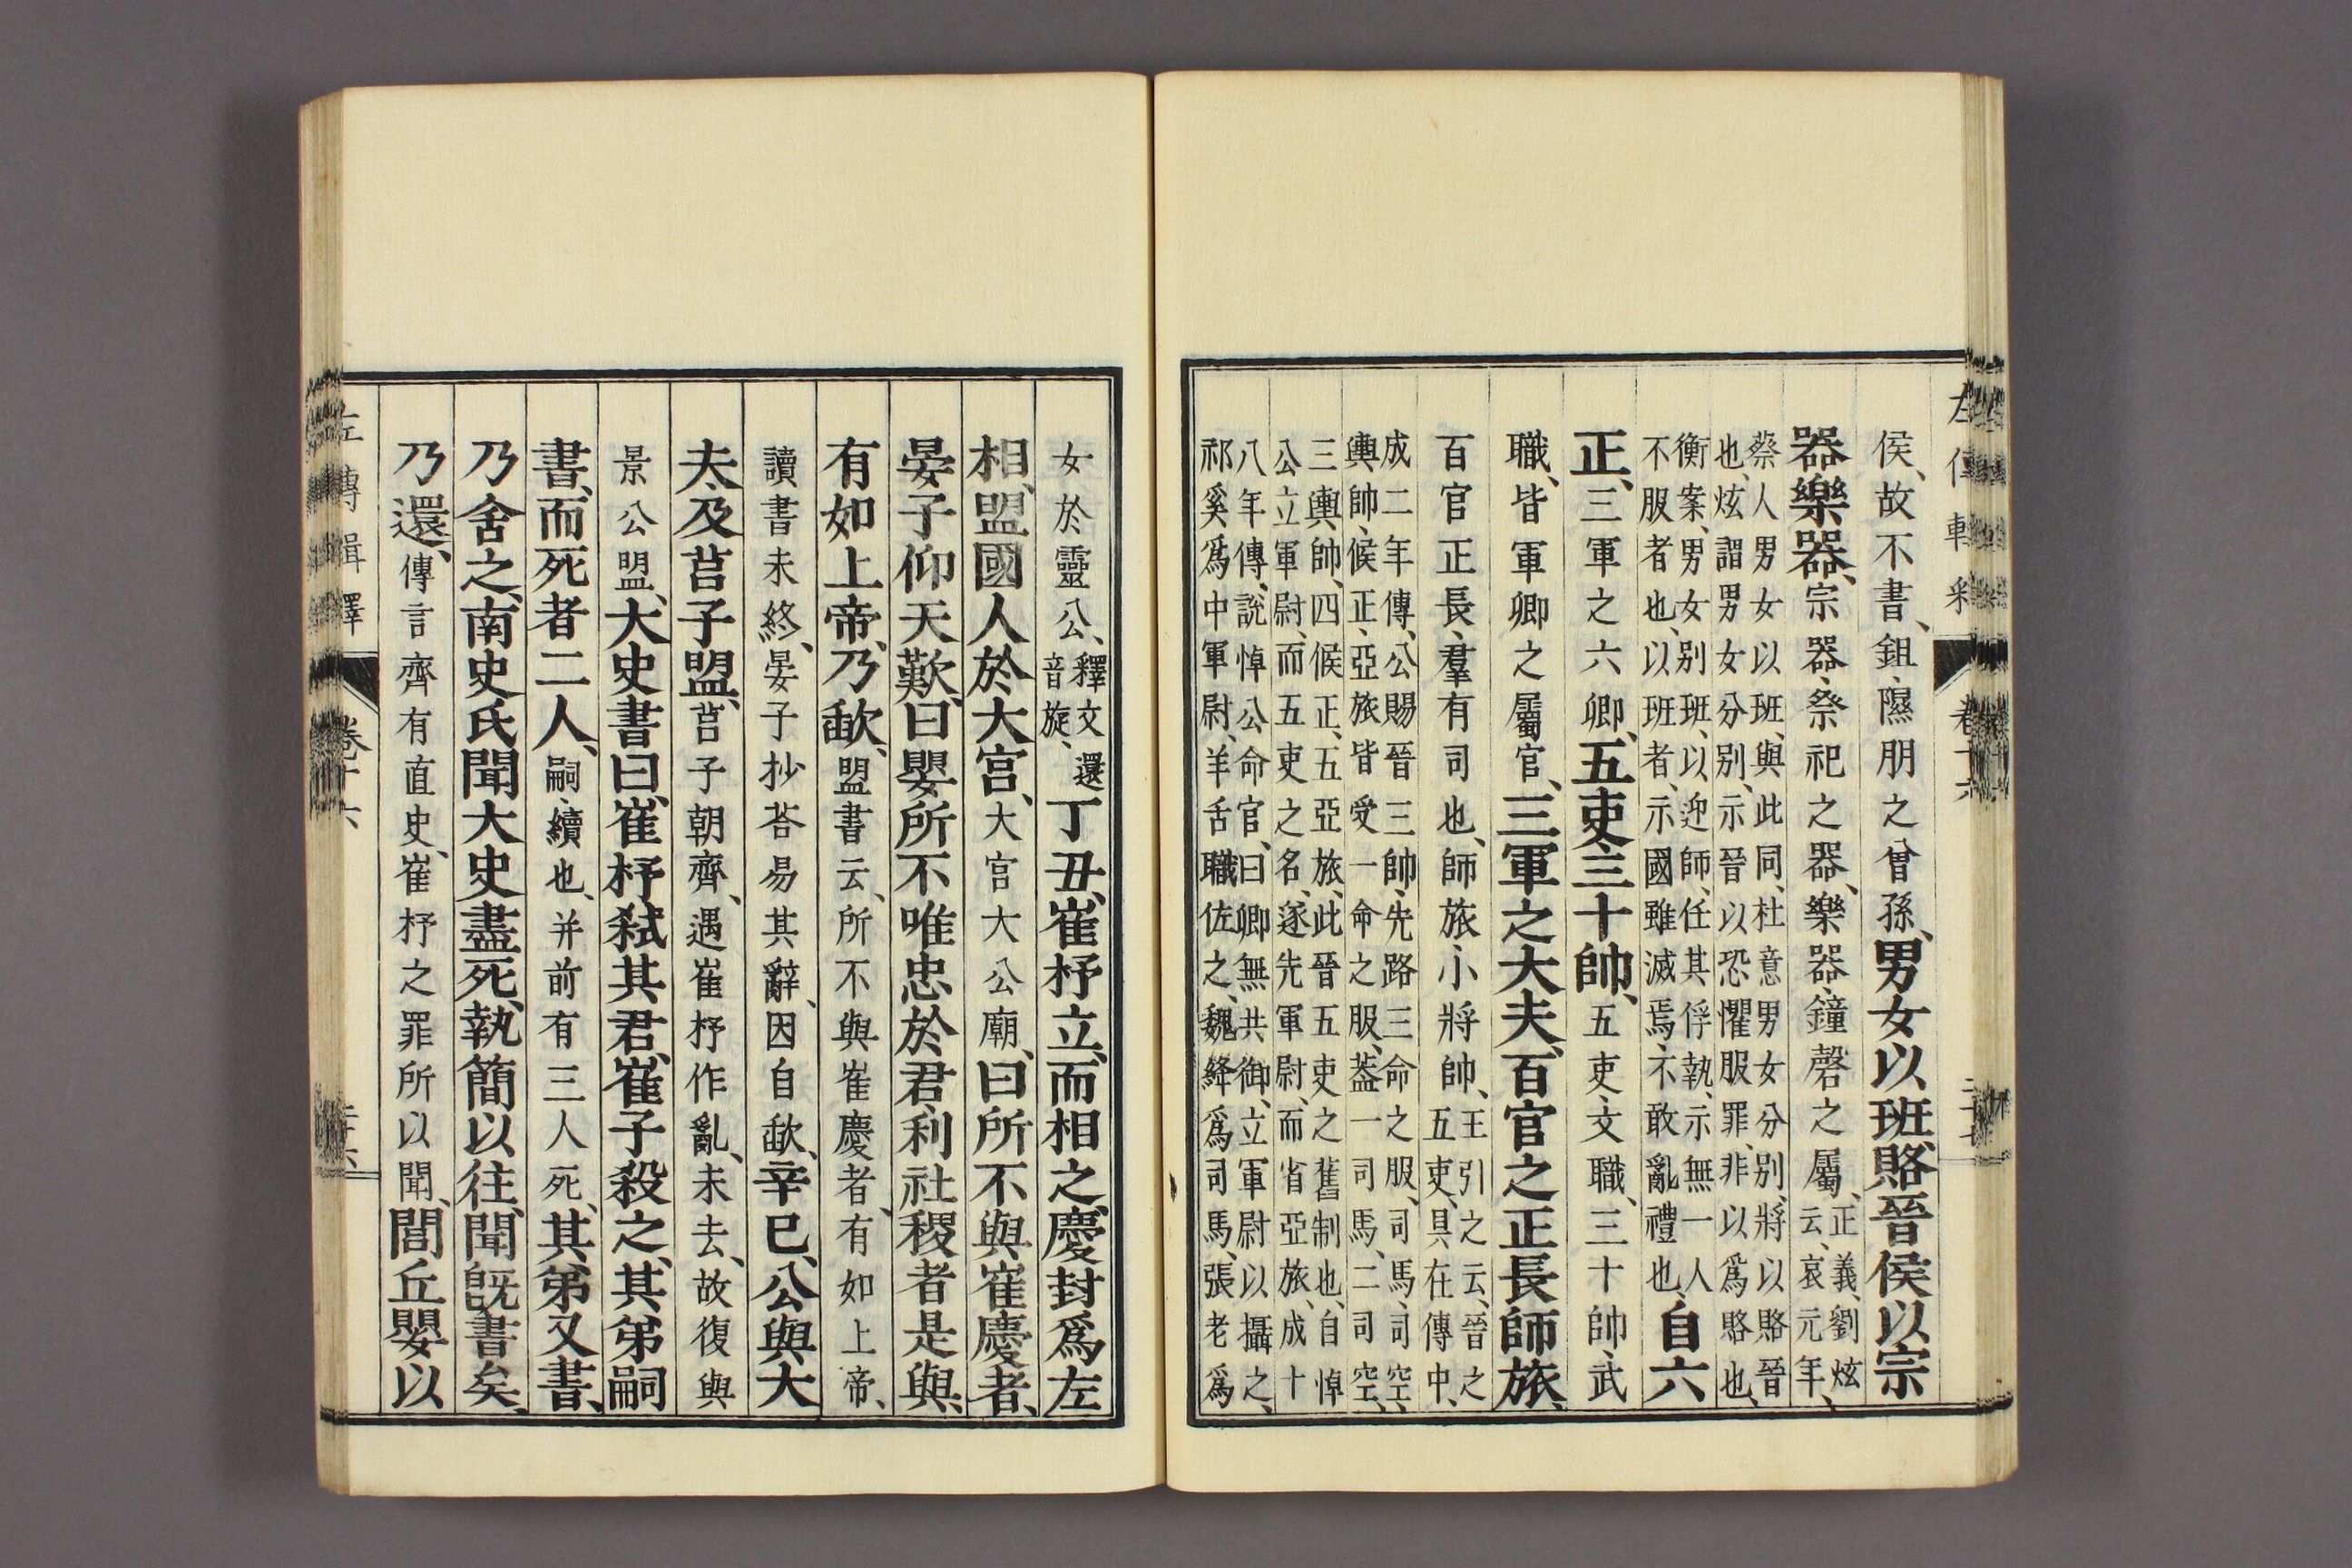 左傳輯釋 卷十六
侯、故不書、鉏、隰朋之曾孫、男女以班、賂晉侯以宗
器樂器、宗器、祭祀之器、樂器、鐘磬之屬、正義、劉炫
云、哀元年、
蔡人男女以班、與此同、杜意男女分別、將以賂晉
也、炫謂男女分別、示晉以恐懼服罪、非以爲賂也、
衡案、男女別班、以迎師、任其俘執、示無一人
不服者也、以班者、示國雖滅焉、不敢亂禮也、自六
正、三軍之六卿、五吏、三十帥、五吏、文職、三十帥、武
職、皆軍卿之屬官、三軍之大夫、百官之正長師旅、
百官正長、羣有司也、師旅、小將帥、王引之云、晉之
五吏、具在傳中、
成二年傳、公賜晉三帥、先路三命之服、司馬、司空、
輿帥、候正、亞旅皆受一命之服、蓋一司馬、二司空、
三輿帥、四候正、五亞旅、此晉五吏之舊制也、自悼
公立軍尉、而五吏之名、遂先軍尉、而省亞旅、成十
八年傳、說悼公命官、曰卿無共御、立軍尉以攝之、
祁奚爲中軍尉、羊舌職佐之、魏絳爲司馬、張老爲
女於靈公、釋文、還
音旋、丁丑、崔杼立、而相之、慶封爲左
相、盟國人於大宮、大宮大公廟、曰所不與崔慶者、
晏子仰天歎、曰嬰所不唯忠於君、利社稷者是與、
有如上帝、乃歃、盟書云、所不與崔慶者、有如上帝、
讀書未終、晏子抄荅易其辭、因自歃、辛巳、公與大
夫、及莒子盟、莒子朝齊、遇崔杼作亂、未去、故復與
景公盟、大史書曰、崔杼弒其君、崔子殺之、其弟嗣
書、而死者二人、嗣、續也、并前有三人死、其弟又書、
乃舍之、南史氏聞大史盡死、執簡以往、聞旣書矣、
乃還、傳言齊有直史、崔杼之罪所以聞、閭丘嬰以
左傳輯釋 卷十六 二十六